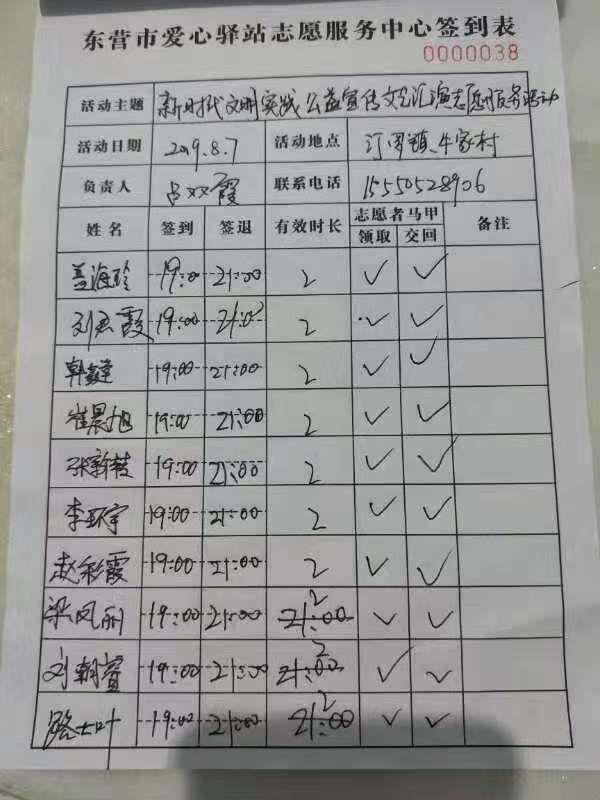 东营市爱心驿站志愿服务中心签到表
0000038
活动主题 新时代文明实践公益宣传文艺汇演志愿服务活动
活动日期 2019.8.7 活动地点 汀罗镇 牛家村
负责人 吕双霞 联系电话 15550528906
姓名 签到 签退 有效时长 志愿者马甲 备注
领取 交回
海玲 19:00 21:00 2 ✓ ✓
刘 霞 19:00 21:00 2 ✓ ✓
韩 19:00 21:00 2 ✓ ✓
崔晨旭 19:00 21:00 2 ✓ ✓
张新 19:00 21:00 2 ✓ ✓
李环宇 19:00 21:00 2 ✓ ✓
赵彩霞 19:00 21:00 2 ✓ ✓
梁凤丽 19:00 21:00 21:00 2 ✓ ✓
刘朝 19:00 21:00 21:00 2 ✓ ✓
路 叶 19:00 21:00 21:00 2 ✓ ✓